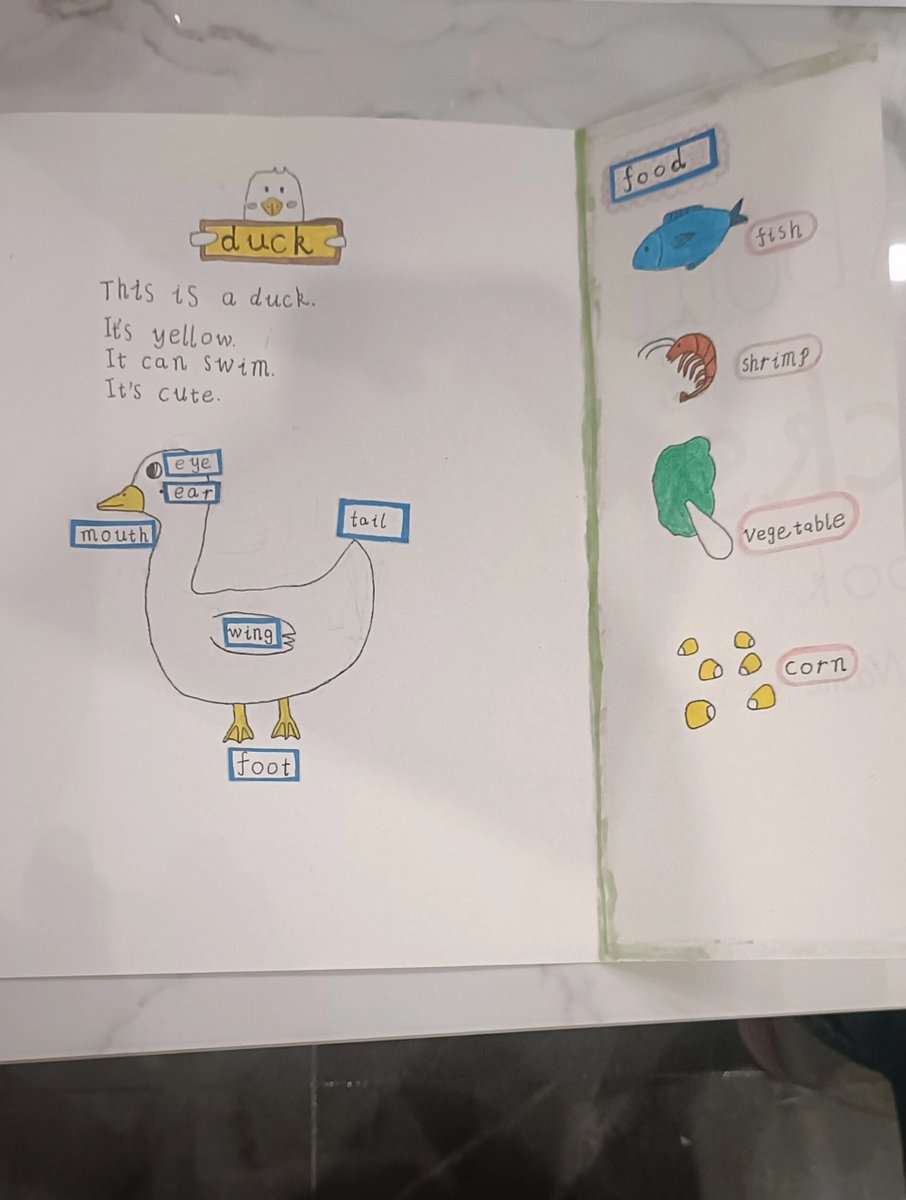 duck
This is a duck.
It's yellow.
It can swim.
It's cute.
eye
ear
mouth
tail
wing
foot
food
fish
shrimp
vegetable
corn